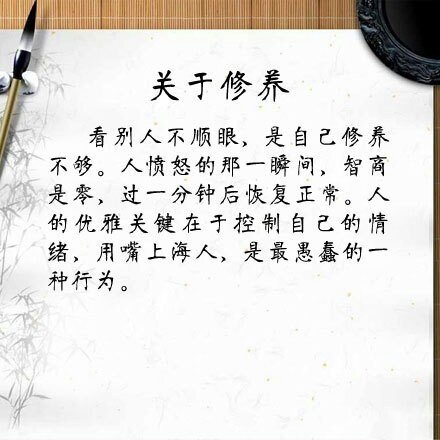 关于修养
看别人不顺眼，是自己修养
不够。人愤怒的那一瞬间，智商
是零，过一分钟后恢复正常。人
的优雅关键在于控制自己的情
绪，用嘴上海人，是最愚蠢的一
种行为。